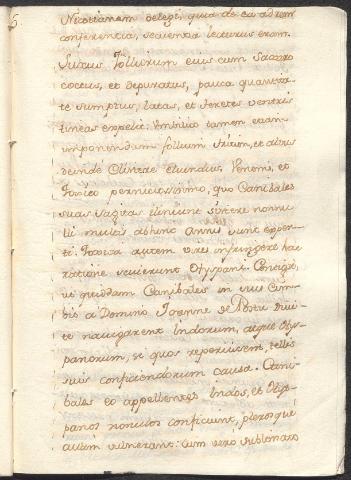 5.
Nicotianam delegi, quia de ea ad rem
conferentia, sequentia lecturus eram.
Succus foliorum eius cum Saccaro
coctus, et depuratus, pauca quantita-
te sumptus, latos, et teretes ventris
lineas expelit: Umbilico tamen etiam
imponendum folium
deinde Clistere eluendus. Veneni, et
Toxico perniciosissimo, quo Canibales
suas sagitas
multis abhinc annis sunt
ti. Toxica autem vires infringere hac
ratione Hyspani. Contigit,
ut quidam Canibales in suis Cim-
bis a Domino Joanne de
te navigarent Indorum, atque Hys-
panorum, si quos reperiissent, telis
suis conficiendorum causa. Cani-
bales eo appellentes Indos, et Hys-
panos nonulos conficiunt, plerosque
autem vulnerant: cum vero sublimato